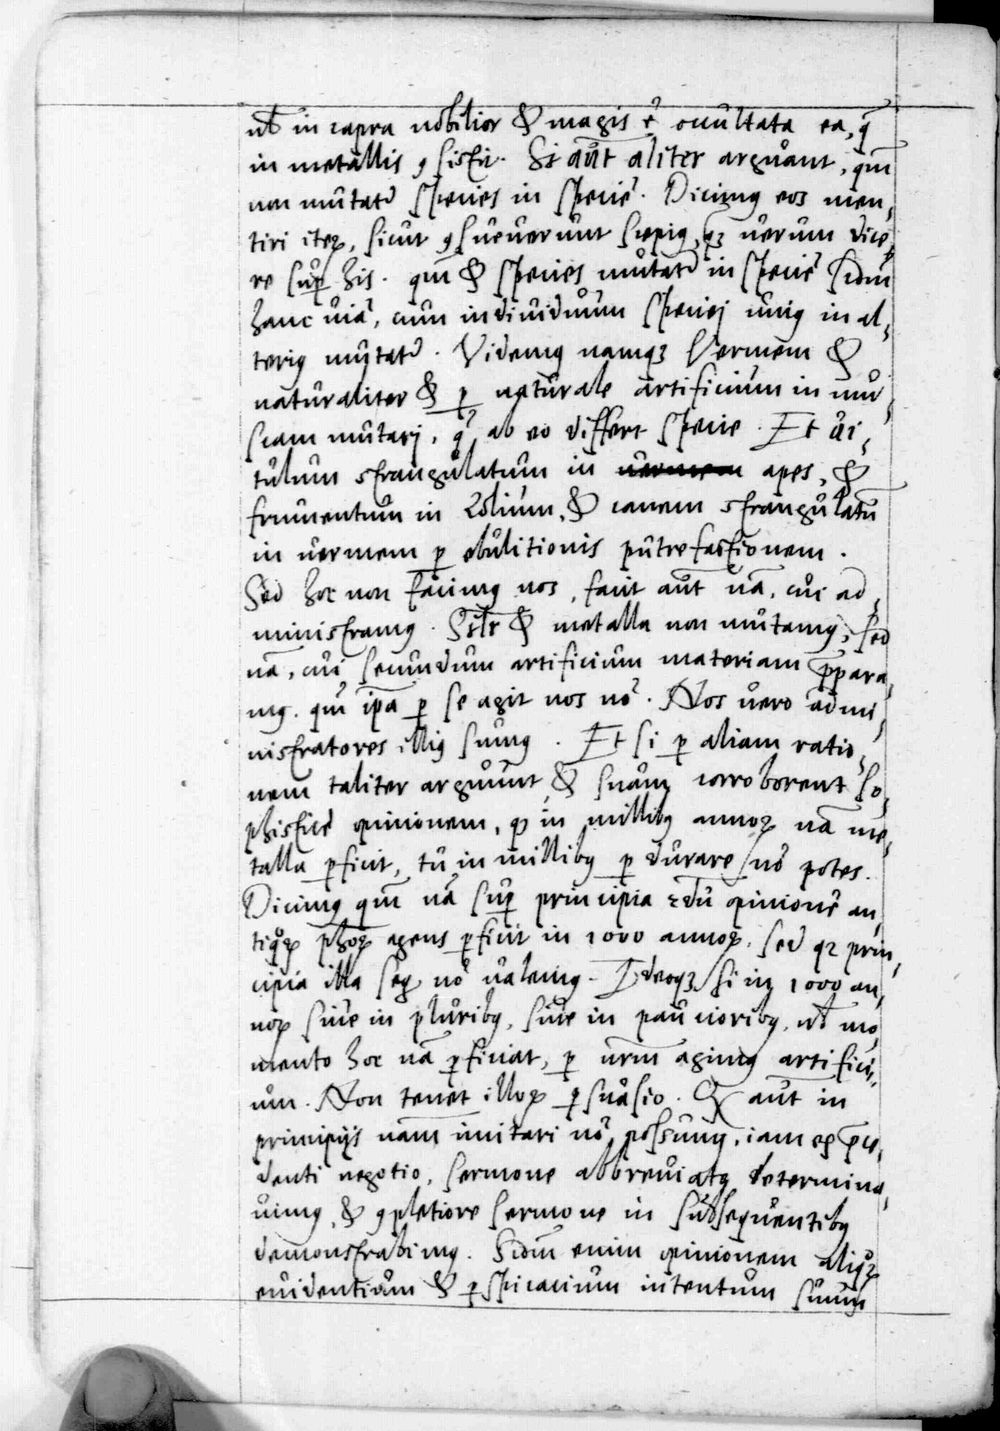 ut in capra nobilior & magis ē occultata ea, q̄
in metallis ꝯsistit. Si aūt aliter arguant, qm̄
non mutatr̄ species in speciē. Dicimꝰ eos men,
tiri iteꝝ, sicut ꝯsueverunt sæpiꝰ, qꝫ verum dice,
re suꝑ his. qm̄ & species mutatr̄ in speciē scdm̄
hanc viā, cum individuum speciei uniꝰ in al,
teriꝰ mutatr̄. Videmꝰ namqꝫ Vermem &
naturaliter & ꝑ naturale artificium in mu,
scam mutari, q̄ ab eo differt specie. Et vi,
tulum strangulatum in apes, &
frumentum in Lolium, & canem strangulatū
in vermem ꝑ ebulitionis putrefactionem.
Sed hoc non facimꝰ nos, facit aūt nā, cui ad,
ministramꝰ. Silr̄ & metalla non mutamꝰ, sed
nā, cui secundum artificium materiam p̄para,
mꝰ. qm̄ ip̄a ꝑ se agit nos nō. Nos vero admi,
nistratores illiꝰ sumꝰ. Et si ꝑ aliam ratio,
nem taliter arguunt, & suam corroborent so,
phisticē opinionem, ꝙ in millibꝰ annoꝝ nā me,
talla ꝑficit, tu in millibꝰ ꝑdurare nō potes.
Dicimꝰ qm̄ nā suꝑ principia scdm̄ opinionē an,
tiquoꝝ ph̄oꝝ agens ꝑficit in 1000 annoꝝ, sed qꝛ prin,
cipia illa seqꝰ nō valemꝰ. Ideoqꝫ si in 1000 an,
noꝝ sive in pluribꝰ, sive in paucioribꝰ, ut mo,
mento hoc nā ꝑficiat, ꝑ nrm̄ agimꝰ artifici,
um. Non tenet illoꝝ ꝑsuasio. Qꝫ aūt in
principijs nām imitari nō possumꝰ, iam ex p̄ce,
denti negotio, sermone abbreviato determina,
vimꝰ, & ꝯpletiore sermone in subsequentibꝰ
demonstrabimꝰ. Scdm̄ enim opinionem aliquoꝝ
evidentium & ꝑspicacium intentum suum